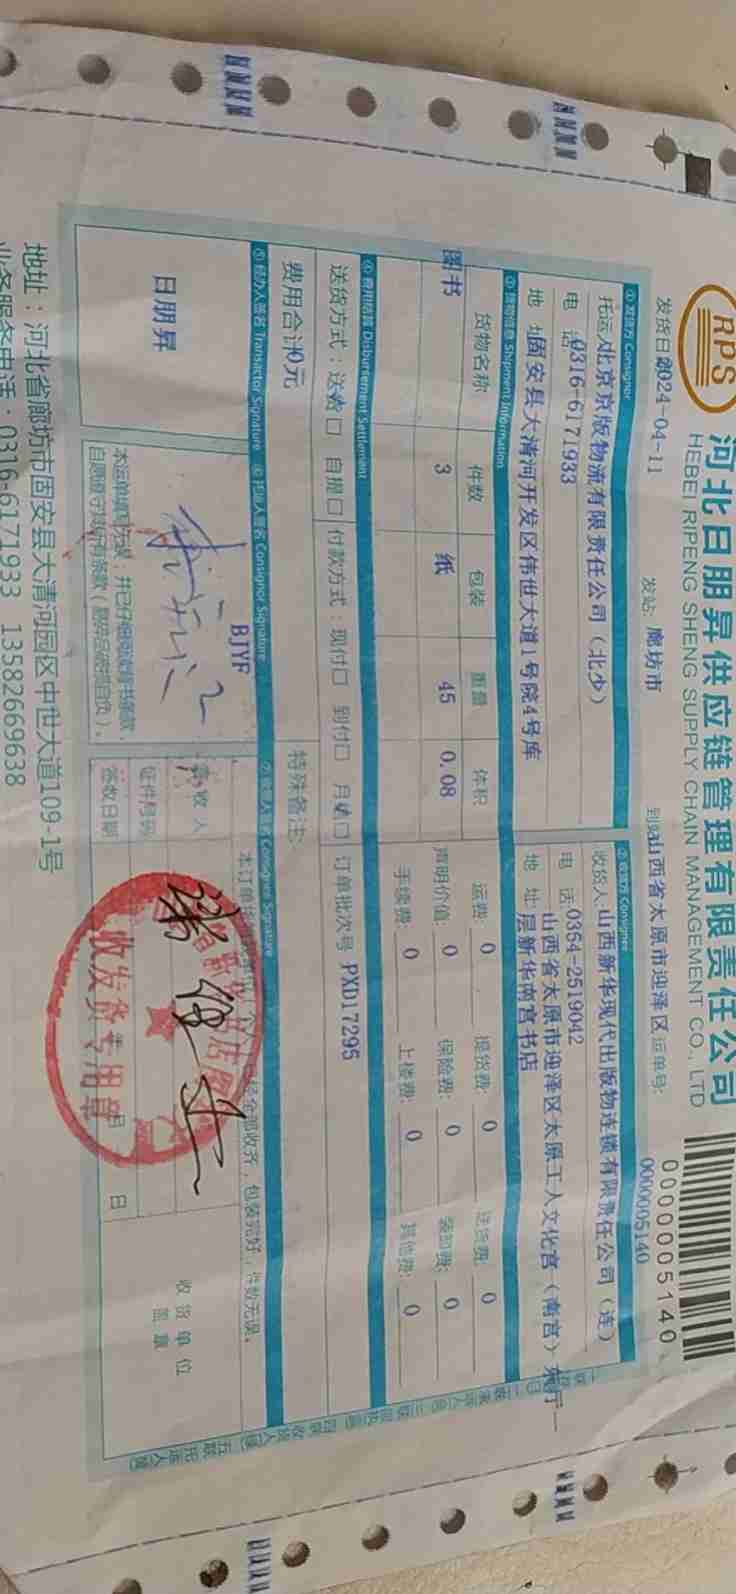 RPS
河北日朋昇供应链管理有限责任公司
HEBEI RIPENG SHENG SUPPLY CHAIN MANAGEMENT CO., LTD
0000005140
发货日期 2024-04-11 发站: 廊坊市 到站: 山西省太原市迎泽区 运单号: 0000005140
① 发货方 Consignor
托运人: 北京京版物流有限责任公司（北少）
电 话: 0316-6171933
地 址: 固安县大清河开发区伟世大道1号院4号库
② 收货方 Consignee
收货人: 山西新华现代出版物连锁有限责任公司（连）
电 话: 0354-2519042
地 址: 山西省太原市迎泽区太原工人文化宫（南宫）东厅一
层新华南宫书店
③ 货物信息 Shipment Information
货物名称 件数 包装 重量 体积
图书 3 纸 45 0.08
运费: 0 提货费: 0 送货费: 0
声明价值: 0 保险费: 0 装卸费: 0
手续费: 0 上楼费: 0 其他费: 0
④ 费用结算 Disbursement Settlement
送货方式: 送货□ 自提□ 付款方式: 现付□ 到付□ 月结□ 订单批次号 PXD17295
费用合计: 0元
特殊备注:
⑤ 经办人签名 Transactor Signature
日朋昇
⑥ 托运人签名 Consignor Signature
BJYF
本运单填写无误，并已仔细阅读背书条款
自愿遵守其所有条款（易碎品破损自负）。
⑦ 收货人签名 Consignee Signature
全部收齐，包装完好，件数无误。
签收人
证件号码
签收日期
月 日
收货单位
盖章
收发货专用章
地址：河北省廊坊市固安县大清河园区中世大道109-1号
业务服务电话：0316-6171933 13582669638